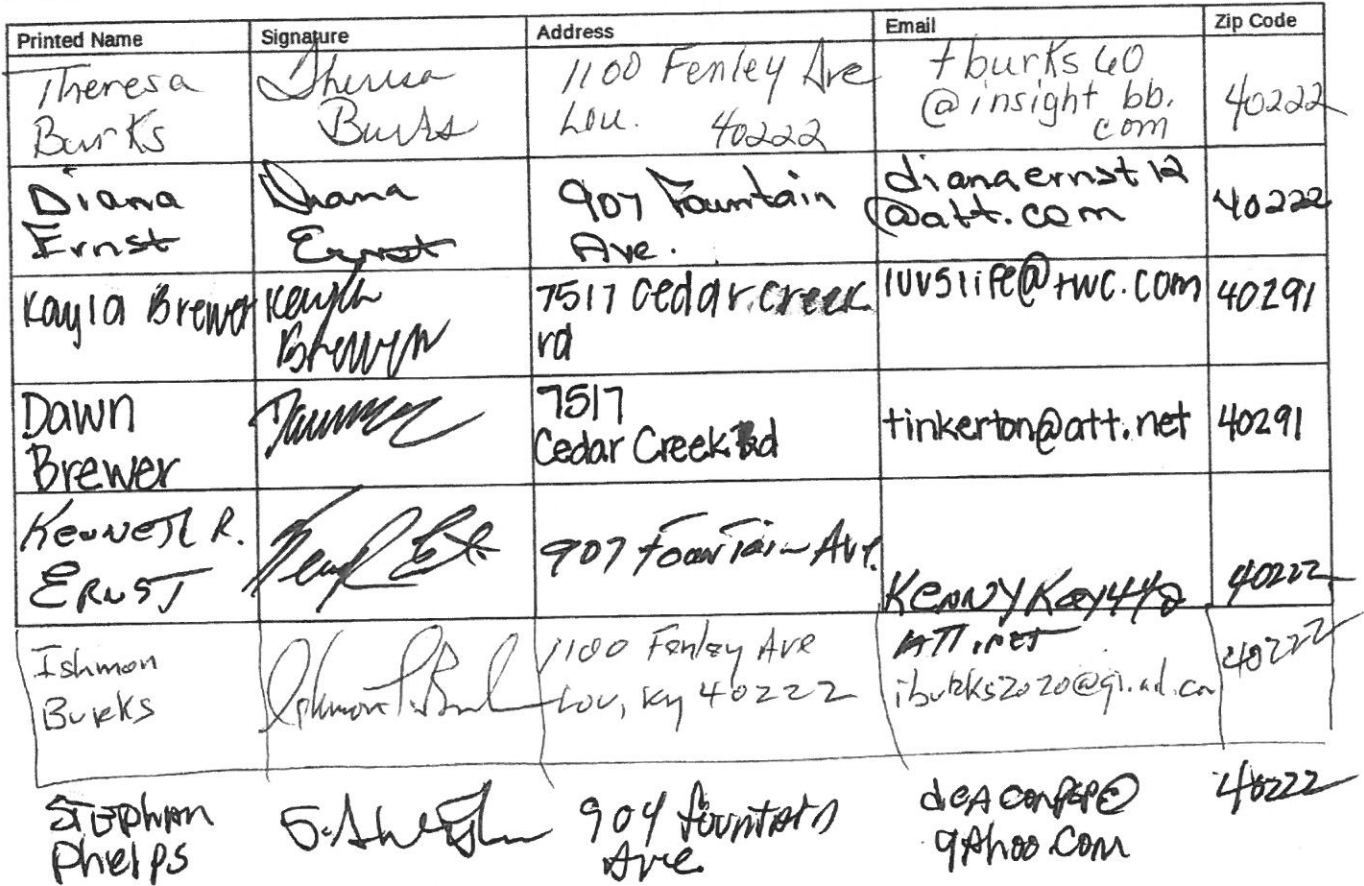 Printed Name Signature Address Email Zip Code
Theresa Burks Theresa Burks 1100 Fenley Ave Lou. 40222 tburks60@insightbb.com 40222
Diana Ernst Diana Ernst 907 Fountain Ave. dianaernst12@att.com 40222
Kayla Brewer Kayla Brewer 7517 Cedar Creek rd luvslife@twc.com 40291
Dawn Brewer 7517 Cedar Creek Rd tinkerton@att.net 40291
Kenneth R. Ernst 907 Fountain Ave. 40222
ATT.NET
Ishmon Burks 1100 Fenley Ave Lou, Ky 40222 40222
Stephan Phelps 904 Fountain Ave. 40222
yahoo.com